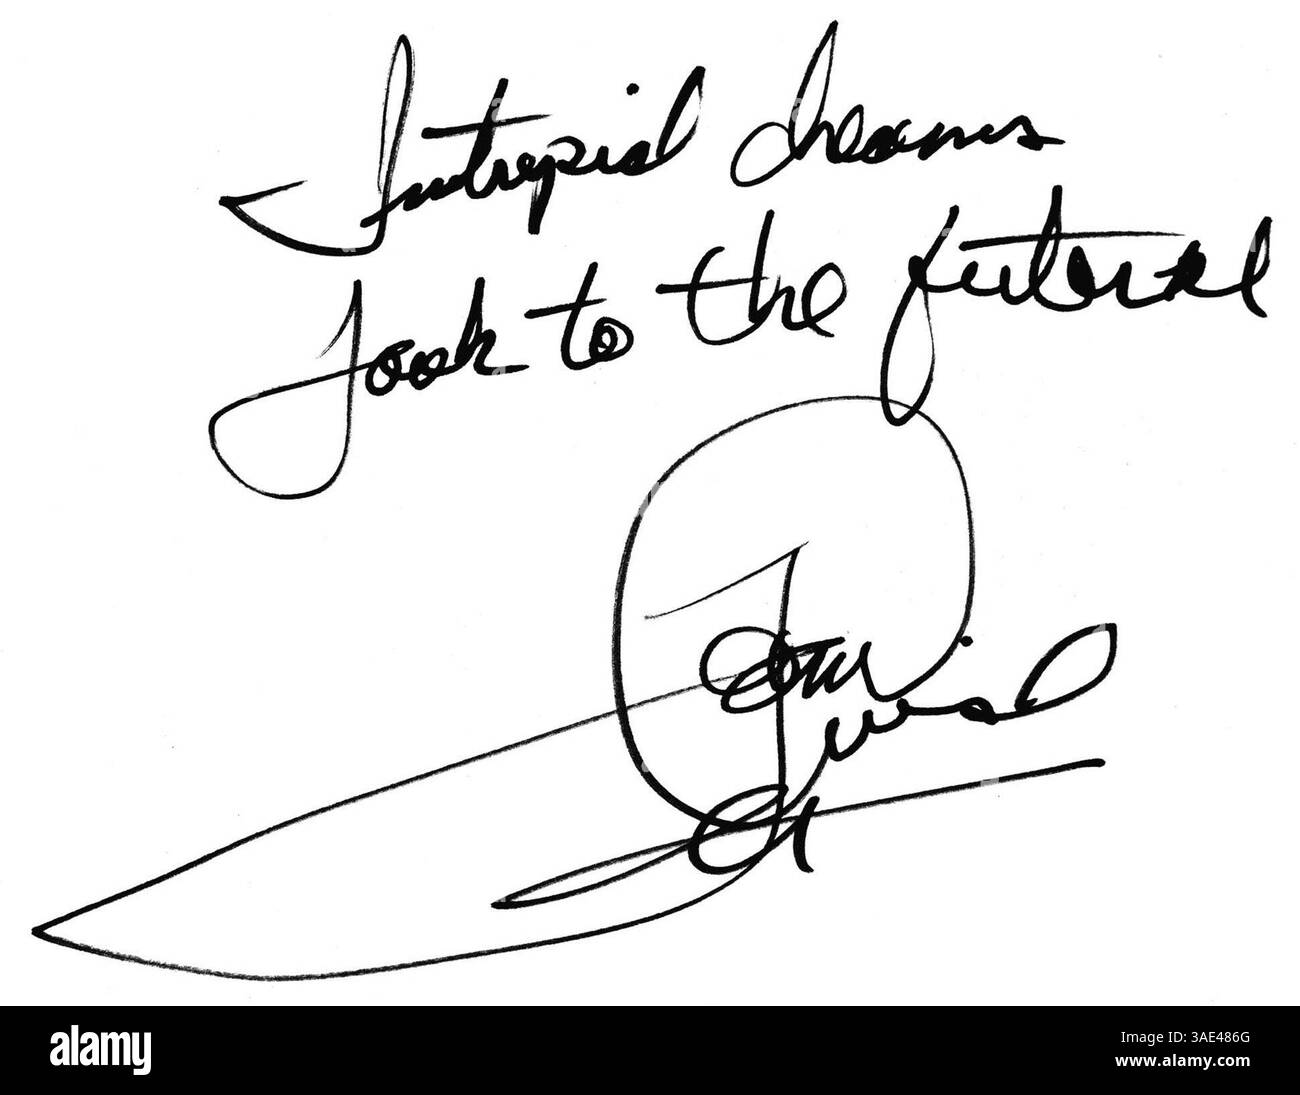 Intrepid dreams
Look to the future
alamy
Image ID: 3AE486G
www.alamy.com